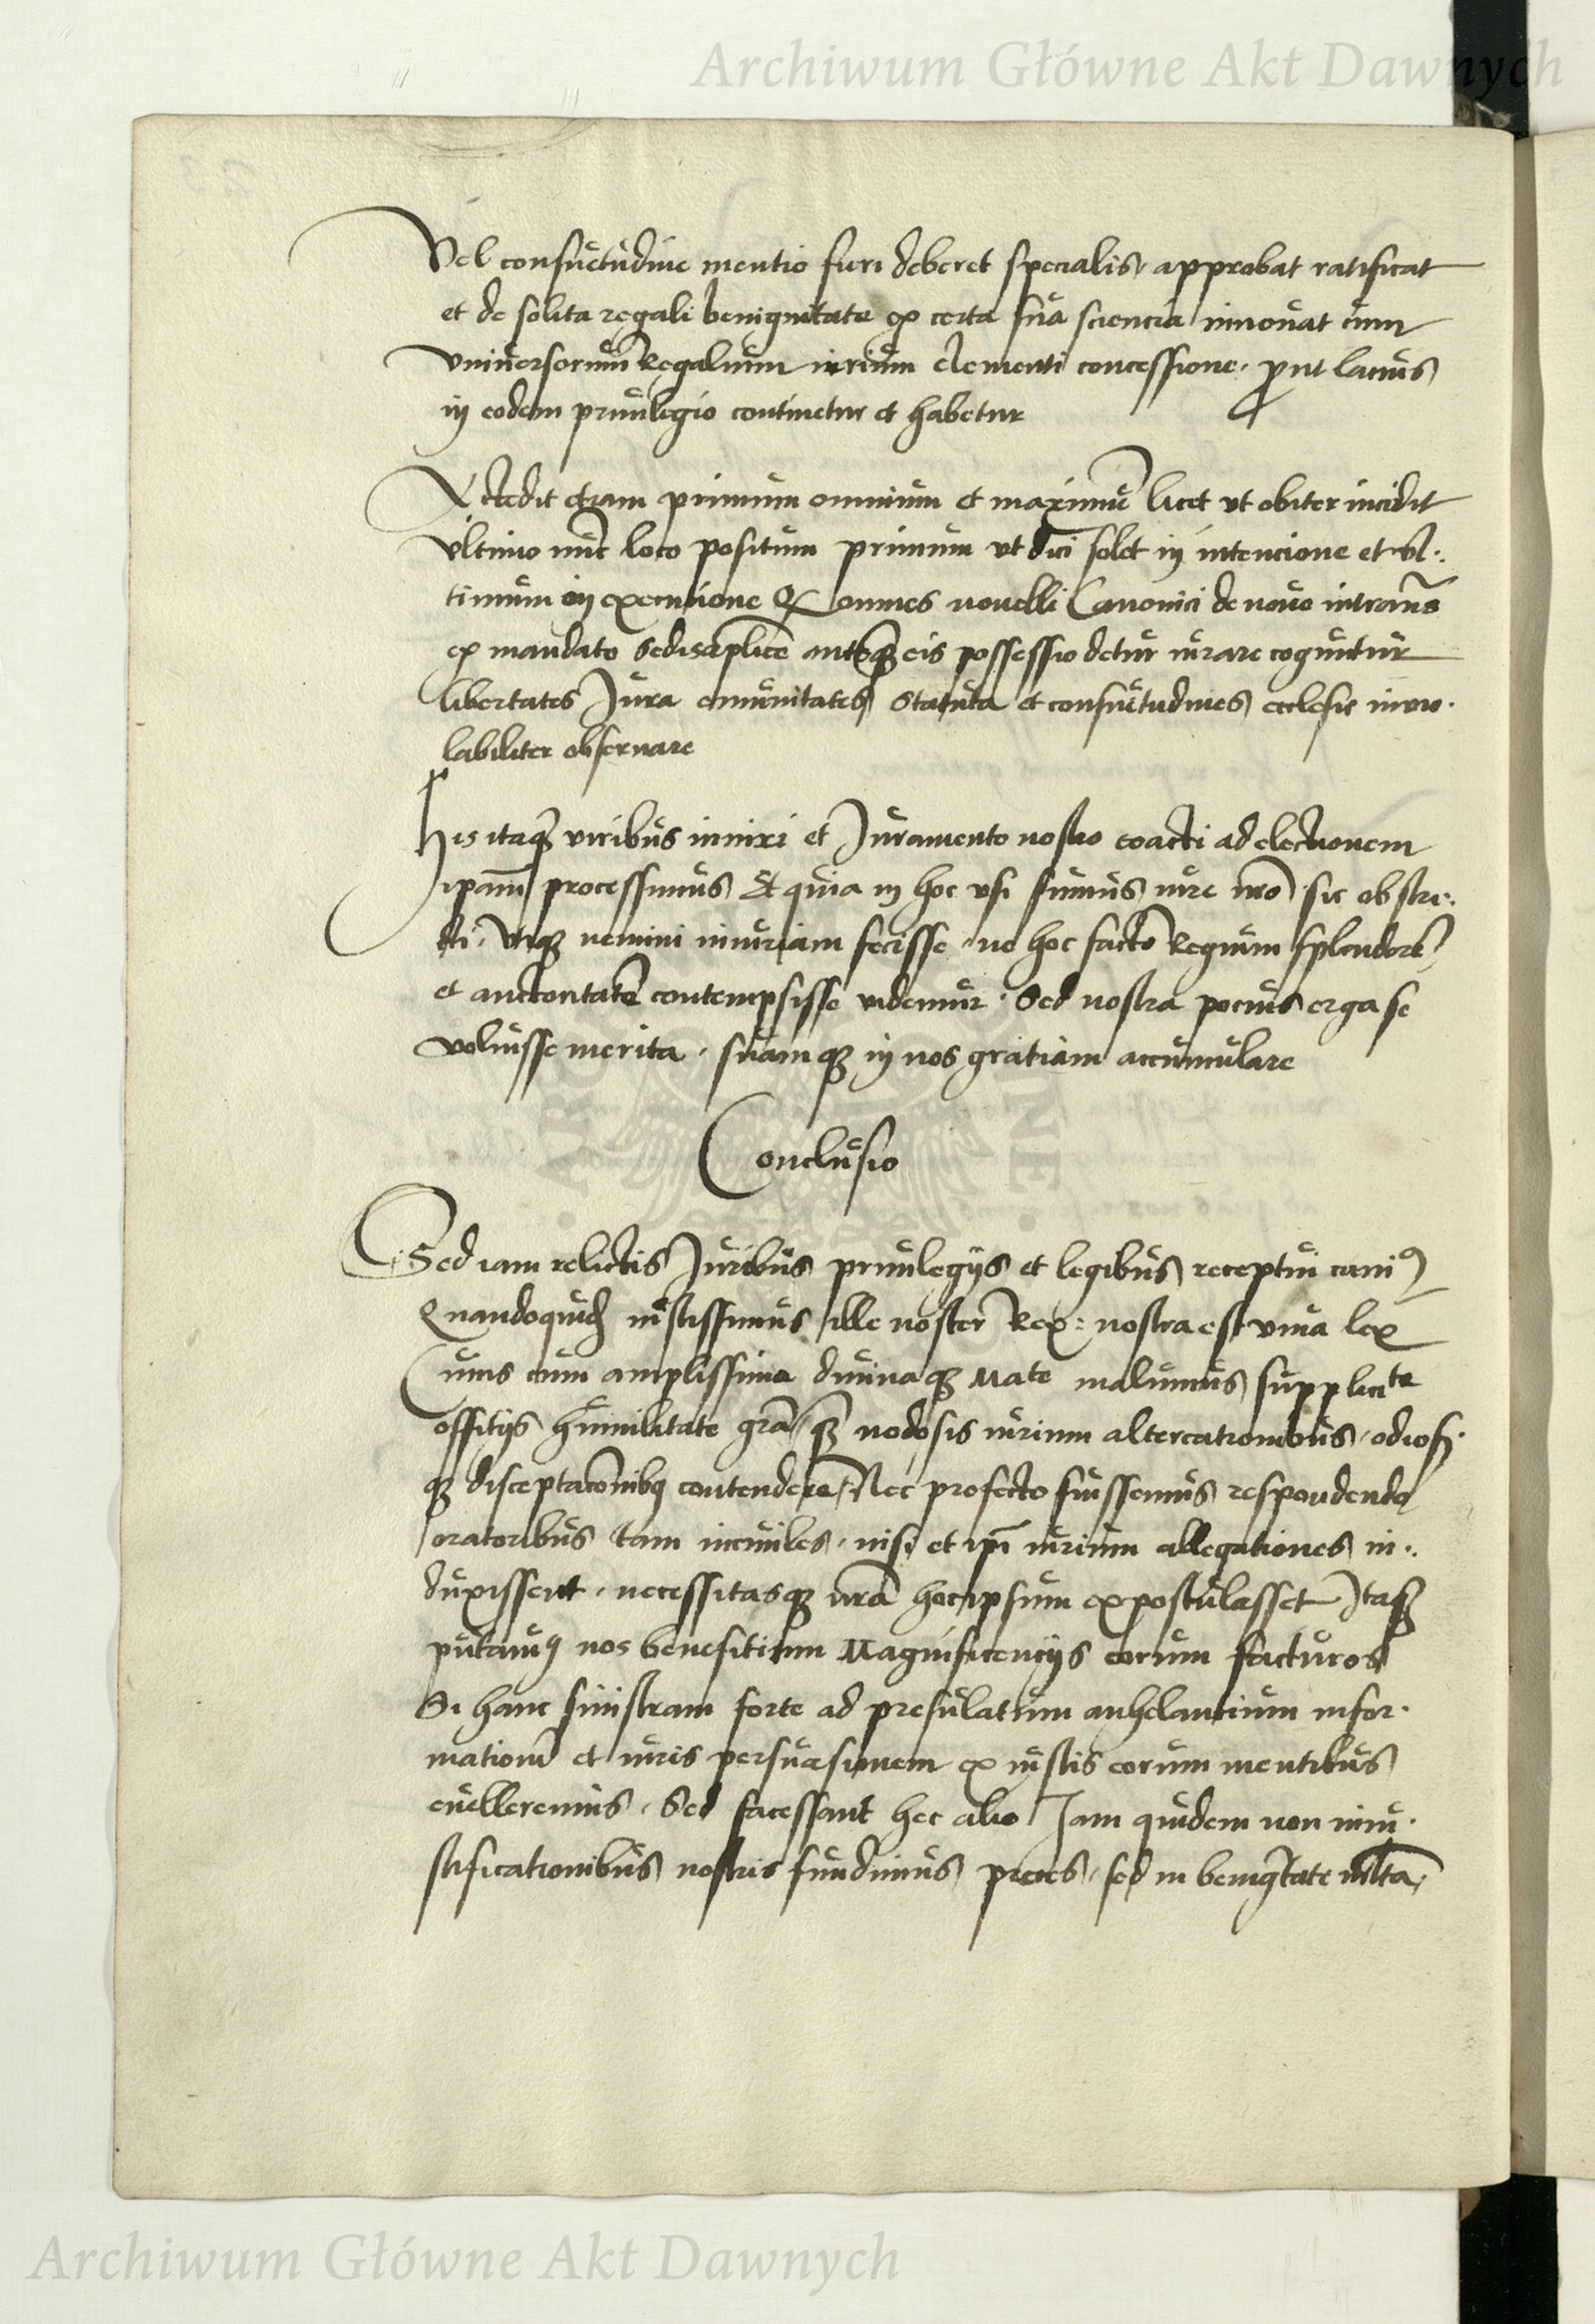 Archiwum Główne Akt Dawnych
Vel consuetudine mentio fieri deberet specialis, approbat ratificat
et de solita regali benignitate ex certa sua sciencia innouat cum
vniuersorum Regalium iurium clementi concessione, put lacius
in eodem priuilegio continetur et habetur
Accedit etiam primum omnium et maximu licet vt obiter incidit
vltimo nuc loco positum primum vt dici solet in intencione et vl.
timum in executione Q omnes nouelli Canonici de nouo intrants
ex mandato Sedis aplice anteq eis possessio detur iurare coguntur
libertates Jura emunitates Statuta et consuetudines ecclesie inuio.
labiliter obseruare
his itaq viribus innixi et Juramento nostro coacti ad electionem
ipam processimus Et quia in hoc vsi sumus iure nro sic obstri.
cti, vtiq nemini iniuriam fecisse, ne hoc facto Regium splendore
et auctoritate contempsisse videmur. Sed nostra pocius erga se
voluisse merita, suamq in nos gratiam accumulare
Conclusio
Sed iam relictis Juribus priuilegijs et legibus receptui cani9
Quandoquid iustissimus ille noster Rex: nostra est viua lex
Cuius cum amplissima diuinaq Mate malumus supplicite
offitijs humilitate gra q nodosis iurium altercationibus, odiosis
q disceptaconibus contendere, Nec profecto fuissemus respondendo
oratoribus tam inciuiles, nisi et ipi iurium allegationes in.
duxissent, necessitasq nra hoc ipsum expostulasset Itaq
putam9 nos benefitium Magnificencijs eorum facturos
Si hanc sinistram forte ad presulatum anhelantium infor.
mationem et iuris persuasionem ex iustis eorum mentibus
euelleremus, Sed facessant hec alio Jam quidem non in iu.
stificationibus nostris fundimus preces, sed in benigtate
Archiwum Główne Akt Dawnych